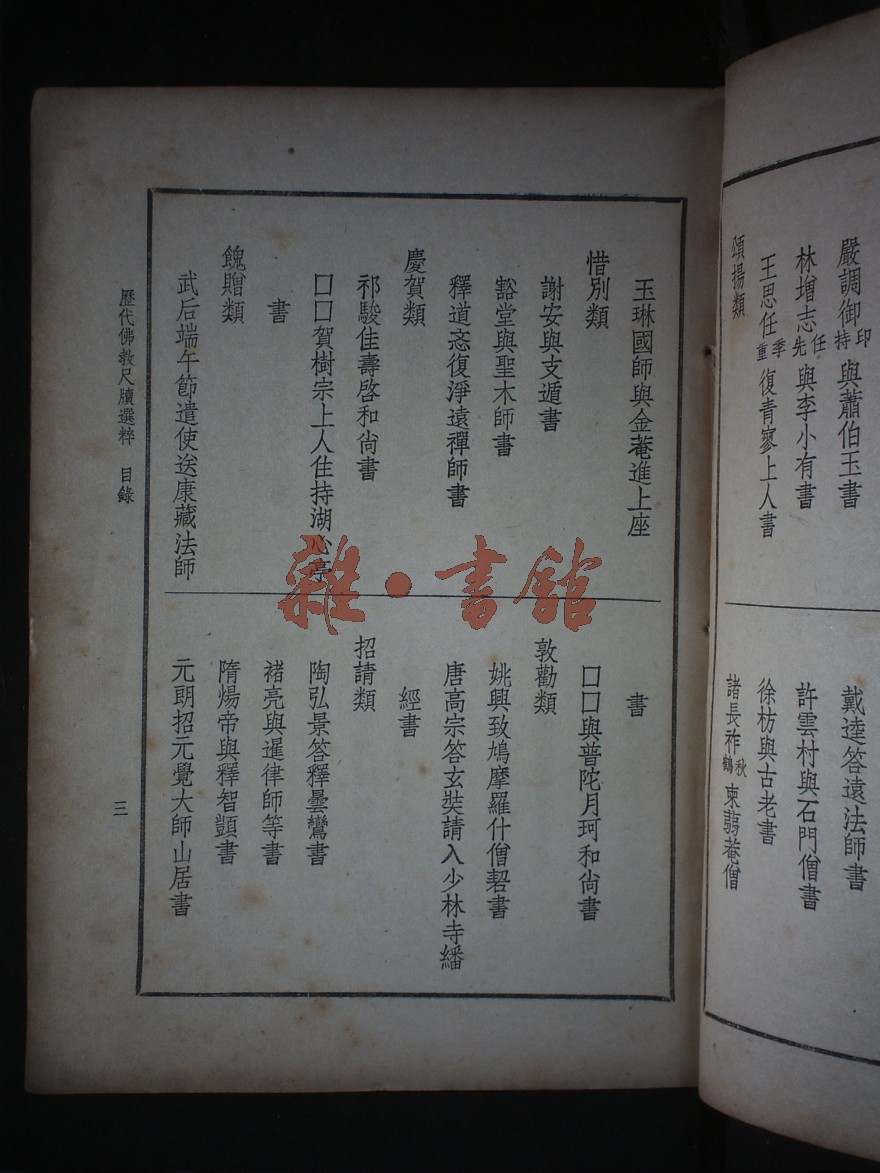 嚴調御印持與蕭伯玉書
林增志任先與李小有書
王思任季重復青寥上人書
頌揚類
戴逵答遠法師書
許雲村與石門僧書
徐枋與古老書
諸長祚秋鶴柬翦菴僧
玉琳國師與金菴進上座
惜別類
謝安與支遁書
豁堂與聖木師書
釋道忞復淨遠禪師書
慶賀類
祁駿佳壽啓和尙書
口口賀樹宗上人住持湖心亭
書
餽贈類
武后端午節遣使送康藏法師
書
口口與普陀月珂和尙書
敦勸類
姚興致鳩摩羅什僧䂮書
唐高宗答玄奘請入少林寺繙
經書
招請類
陶弘景答釋曇鸞書
褚亮與暹律師等書
隋煬帝與釋智顗書
元朗招元覺大師山居書
歷代佛教尺牘選粹 目錄
三
雜·書館